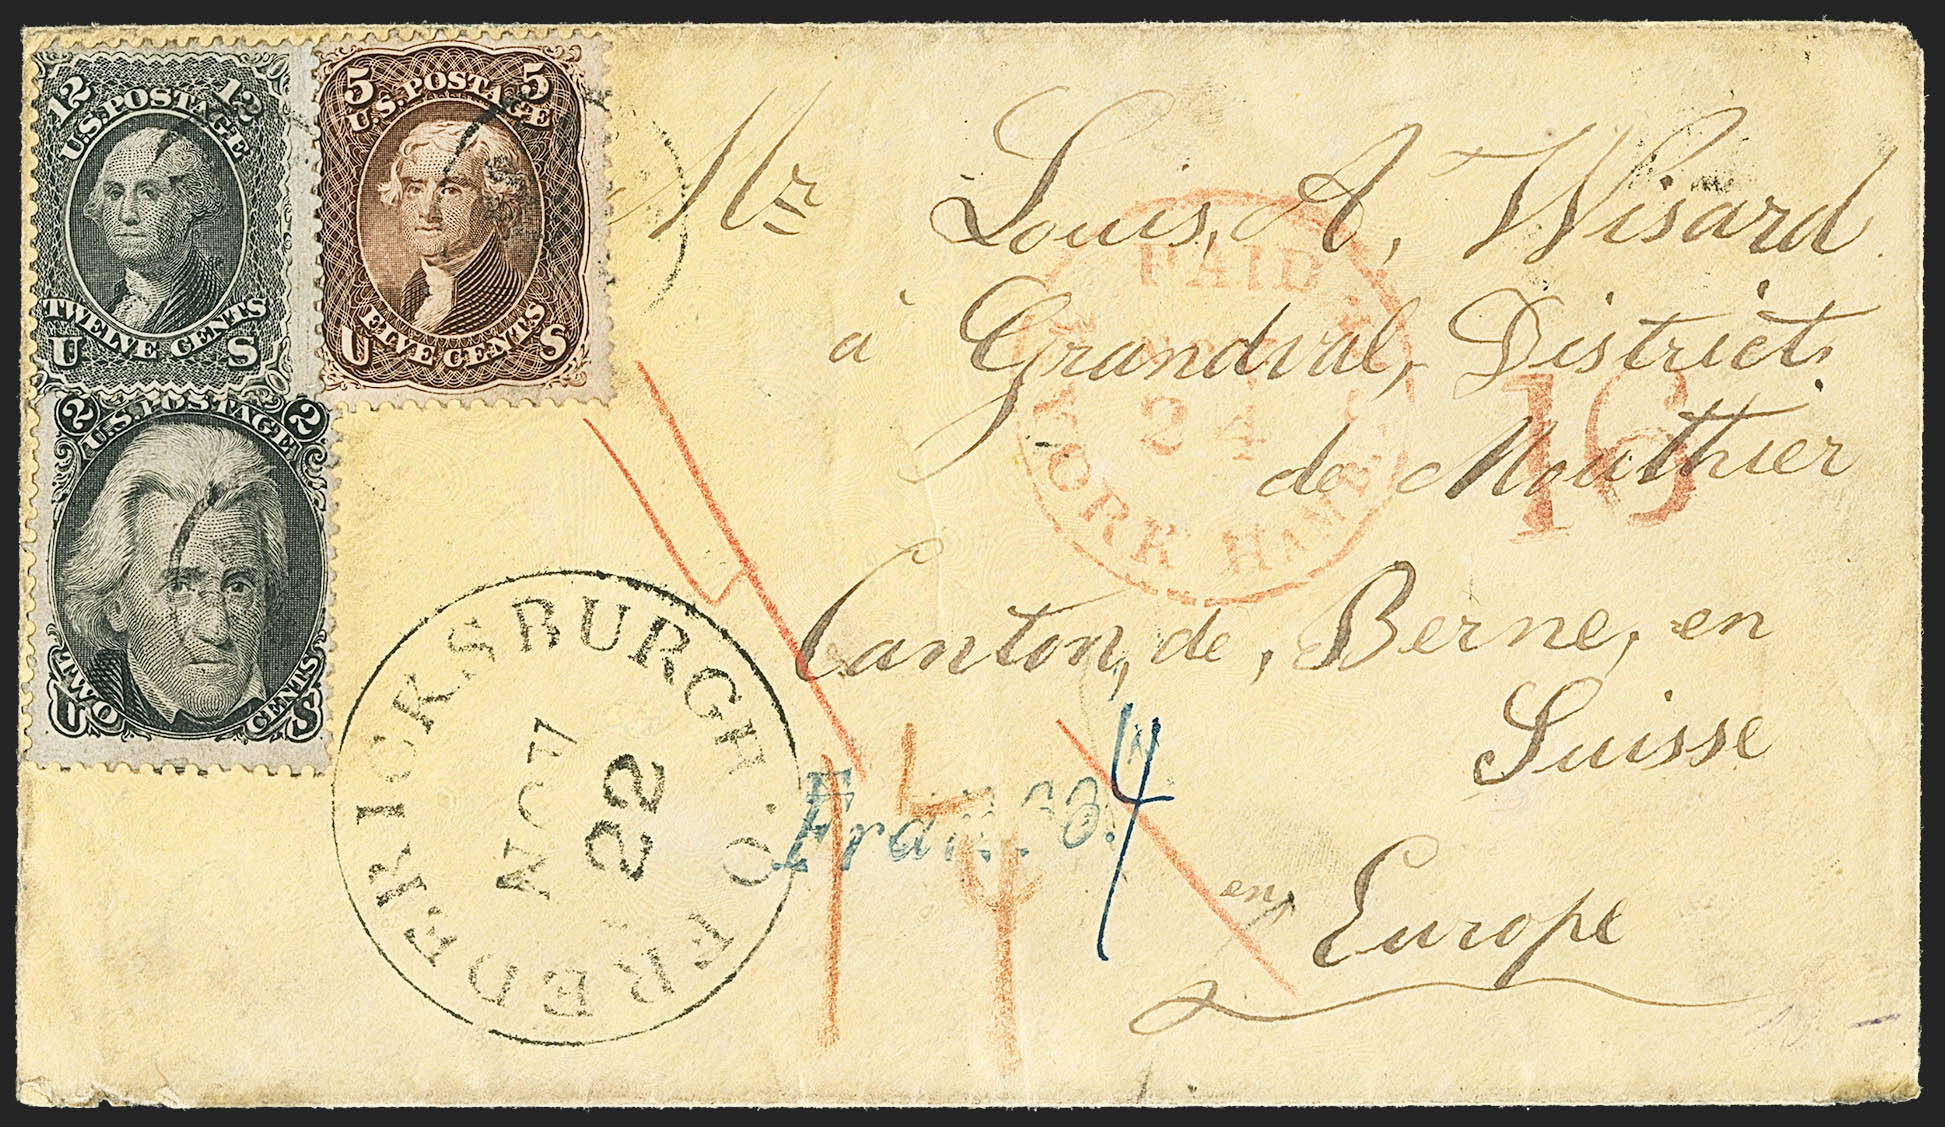 12 12
U.S. POSTAGE
TWELVE CENTS
U S
5 5
U.S. POSTAGE
FIVE CENTS
U S
2 2
U.S. POSTAGE
TWO CENTS
U S
Mr Louis, A, Wisard
à Grandval, District,
de Mouthier
Canton, de, Berne, en
Suisse
en, Europe
PAID
24
YORK HAMB
16
FREDERICKSBURGH. O.
NOV
22
Franco.
4